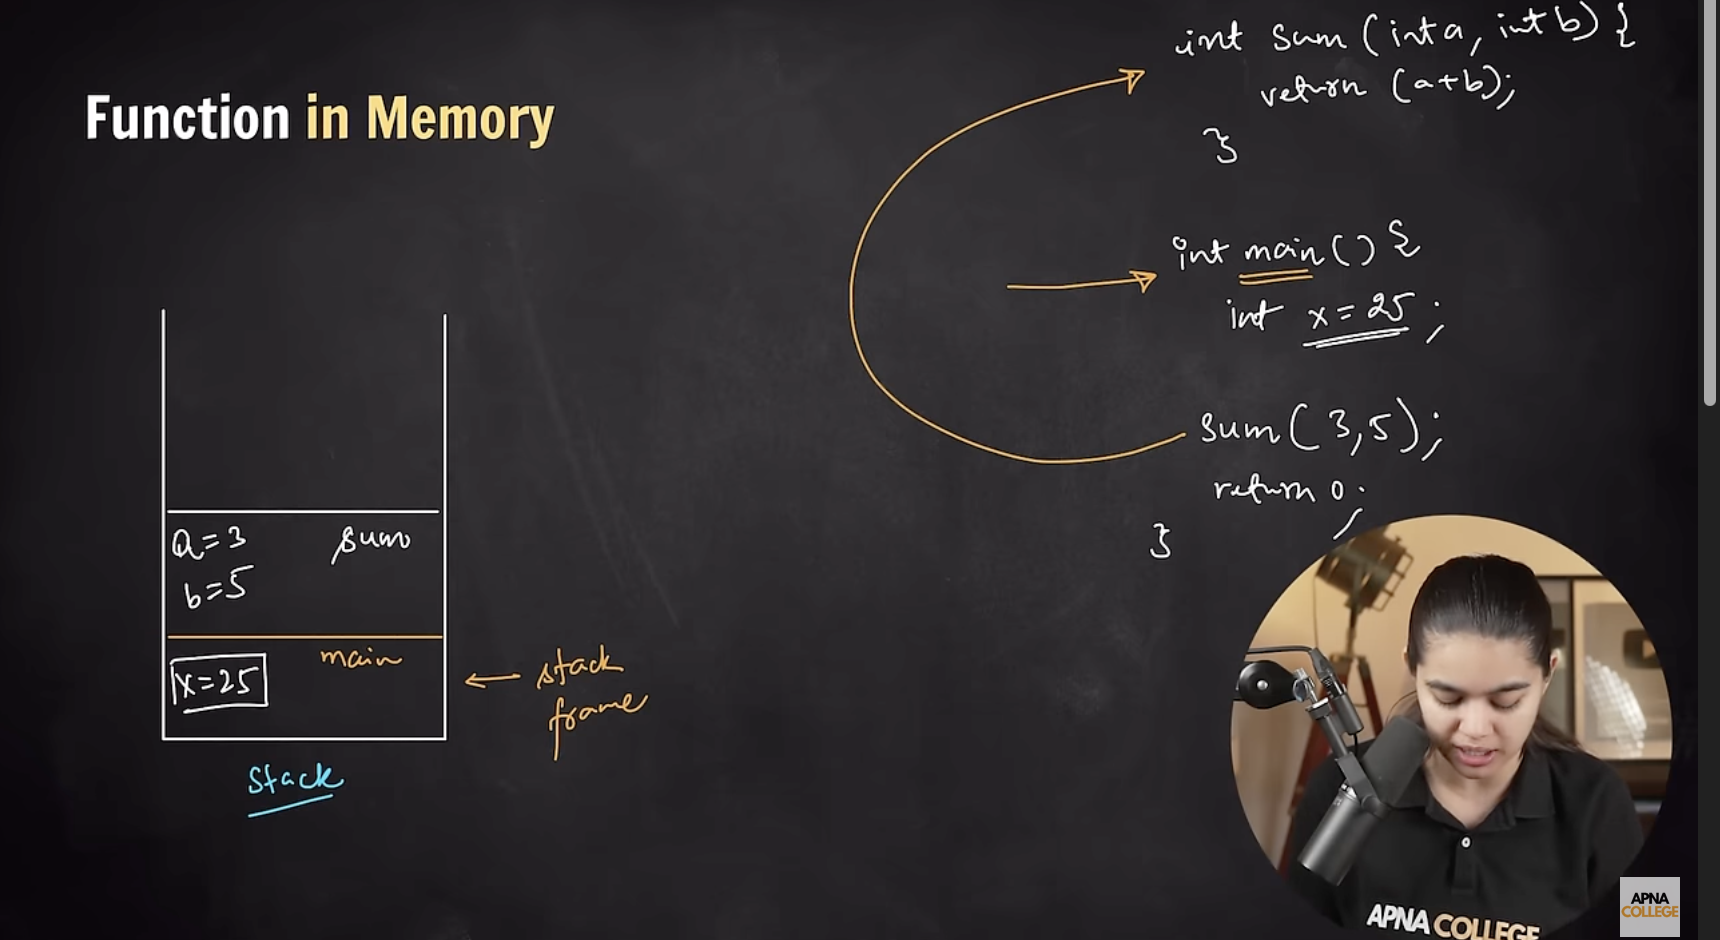 Function in Memory
int sum (int a, int b) {
return (a+b);
}
int main () {
int x = 25 ;
sum ( 3,5 );
return 0;
}
a = 3 sum
b = 5
main
x = 25
stack
frame
Stack
APNA COLLEGE
APNA
COLLEGE